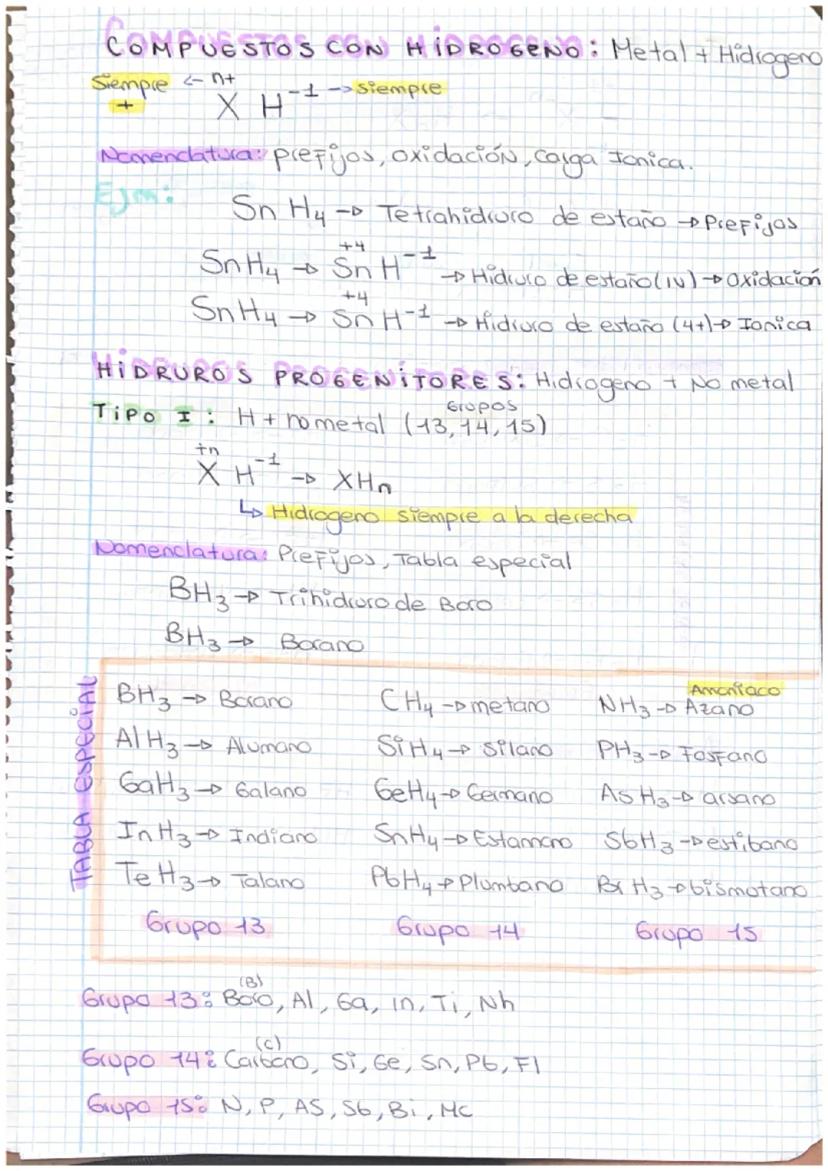 COMPUESTOS CON HiDROGENO: Metal + Hidrogeno
Siempre + <- n+ X H -1 -> siempre
Nomenclatura: prefijos, oxidación, carga Ionica.
Ejm:
SnH4 -> Tetrahidruro de estaño -> Prefijos
SnH4 -> Sn+4 H-1 -> Hidruro de estaño (IV) -> Oxidación
SnH4 -> Sn+4 H-1 -> Hidruro de estaño (4+) -> Ionica
HiDRUROS PROGENiTORES: Hidrogeno + No metal
TiPO I: H + no metal (13, 14, 15) Grupos
X+n H-1 -> XHn
↳ Hidrogeno siempre a la derecha
Nomenclatura: Prefijos, Tabla especial
BH3 -> Trihidruro de Boro
BH3 -> Borano
TABLA ESPECIAL
BH3 -> Borano CH4 -> metano NH3 -> Azano Amoníaco
AlH3 -> Alumano SiH4 -> Silano PH3 -> Fosfano
GaH3 -> Galano GeH4 -> Germano AsH3 -> arsano
InH3 -> Indiano SnH4 -> Estannano SbH3 -> estibano
TeH3 -> Talano PbH4 -> Plumbano BiH3 -> bismotano
Grupo 13 Grupo 14 Grupo 15
Grupo 13: Boro (B), Al, Ga, In, Ti, Nh
Grupo 14: Carbono (C), Si, Ge, Sn, Pb, Fl
Grupo 15: N, P, AS, Sb, Bi, Mc